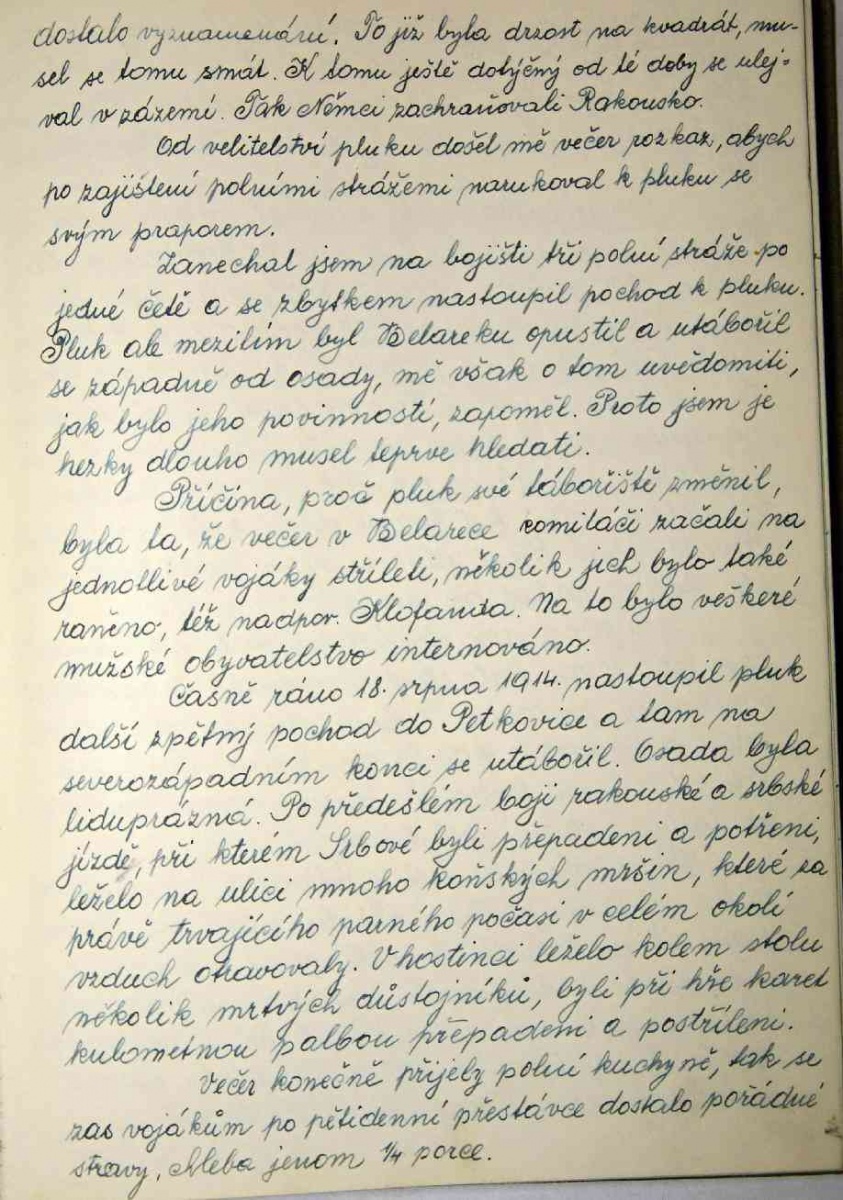 dostalo vyznamenání. To již byla drzost na kvadrát, mu-
sel se tomu smát. K tomu ještě dotyčný od té doby se ulej-
val v zázemí. Tak Němci zachraňovali Rakousko.
Od velitelství pluku došel mě večer rozkaz, abych
po zajištení polními strážemi narukoval k pluku se
svým praporem.
Zanechal jsem na bojišti tři polní stráže po
jedné četě a se zbytkem nastoupil pochod k pluku.
Pluk ale mezitím byl Belareku opustil a utábořil
se západně od osady, mě však o tom uvědomiti,
jak bylo jeho povinností, zapoměl. Proto jsem je
hezky dlouho musel teprve hledati.
Příčina, proč pluk své tábořiště změnil,
byla ta, že večer v Belarece comitáči začali na
jednotlivé vojáky stříleti, několik jich bylo také
raněno, též nadpor. Klofanda. Na to bylo veškeré
mužské obyvatelstvo internováno.
Časně ráno 18. srpna 1914. nastoupil pluk
další zpětný pochod do Petkovice a tam na
severozápadním konci se utábořil. Osada byla
liduprázná. Po předešlém boji rakouské a srbské
jízdě, při kterém Srbové byli přepadeni a potřeni,
leželo na ulici mnoho koňských mršin, které za
právě trvajícího parného počasi v celém okolí
vzduch otravovaly. V hostinci leželo kolem stolu
několik mrtvých důstojníků, byli při hře karet
kulometnou palbou přepadeni a postříleni.
Večer konečně přijely polní kuchyně, tak se
zas vojákům po pětidenní přestávce dostalo pořádné
stravy, chleba jenom 1/4 porce.